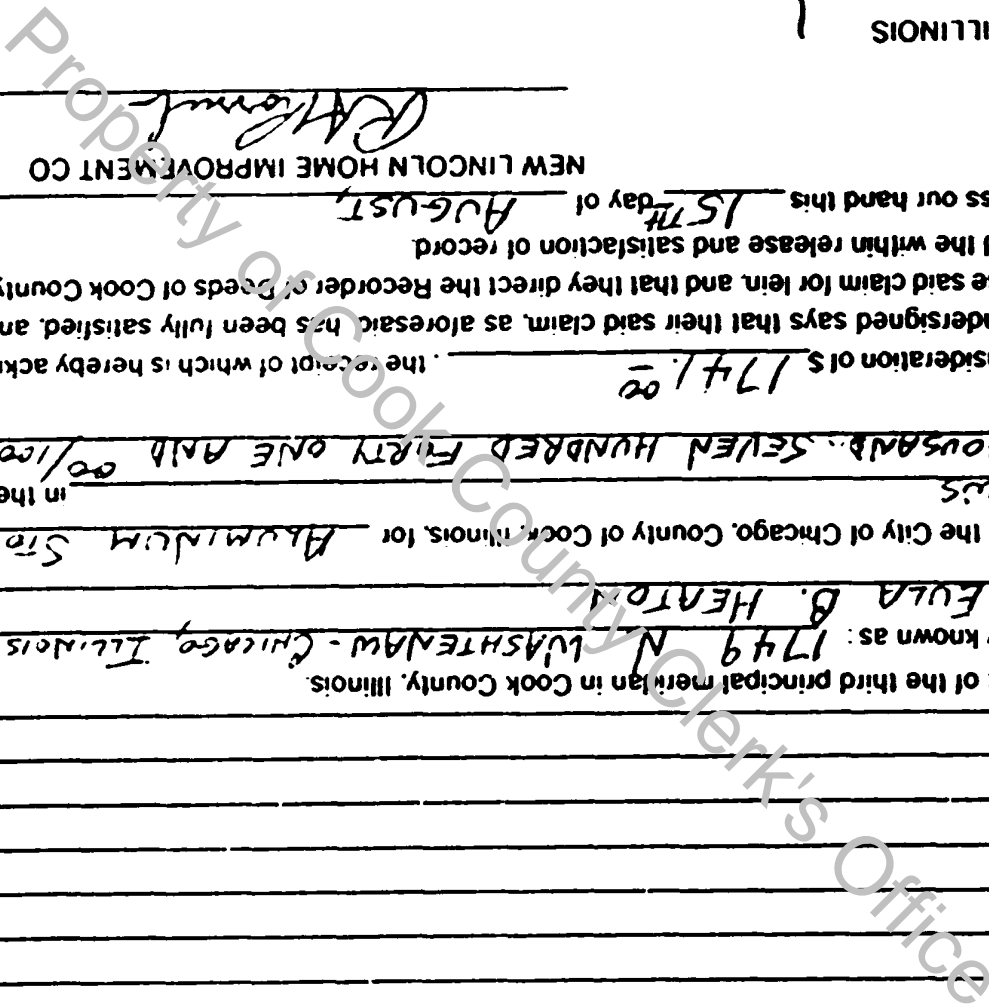 of the third principal meridian in Cook County, Illinois.
known as: 1749 N WASHTENAW - CHICAGO, ILLINOIS
EULA B. HEATON
the City of Chicago, County of Cook, Illinois, for ALUMINUM SID
in the
OUSAND.. SEVEN HUNDRED FORTY ONE AND 00/100
sideration of $ 1741.00 . the receipt of which is hereby ackn
ndersigned says that their said claim, as aforesaid, has been fully satisfied, an
se said claim for lein, and that they direct the Recorder of Deeds of Cook County
d the within release and satisfaction of record.
ss our hand this 15TH day of AUGUST,
NEW LINCOLN HOME IMPROVEMENT CO
ILLINOIS
Property of Cook County Clerk's Office